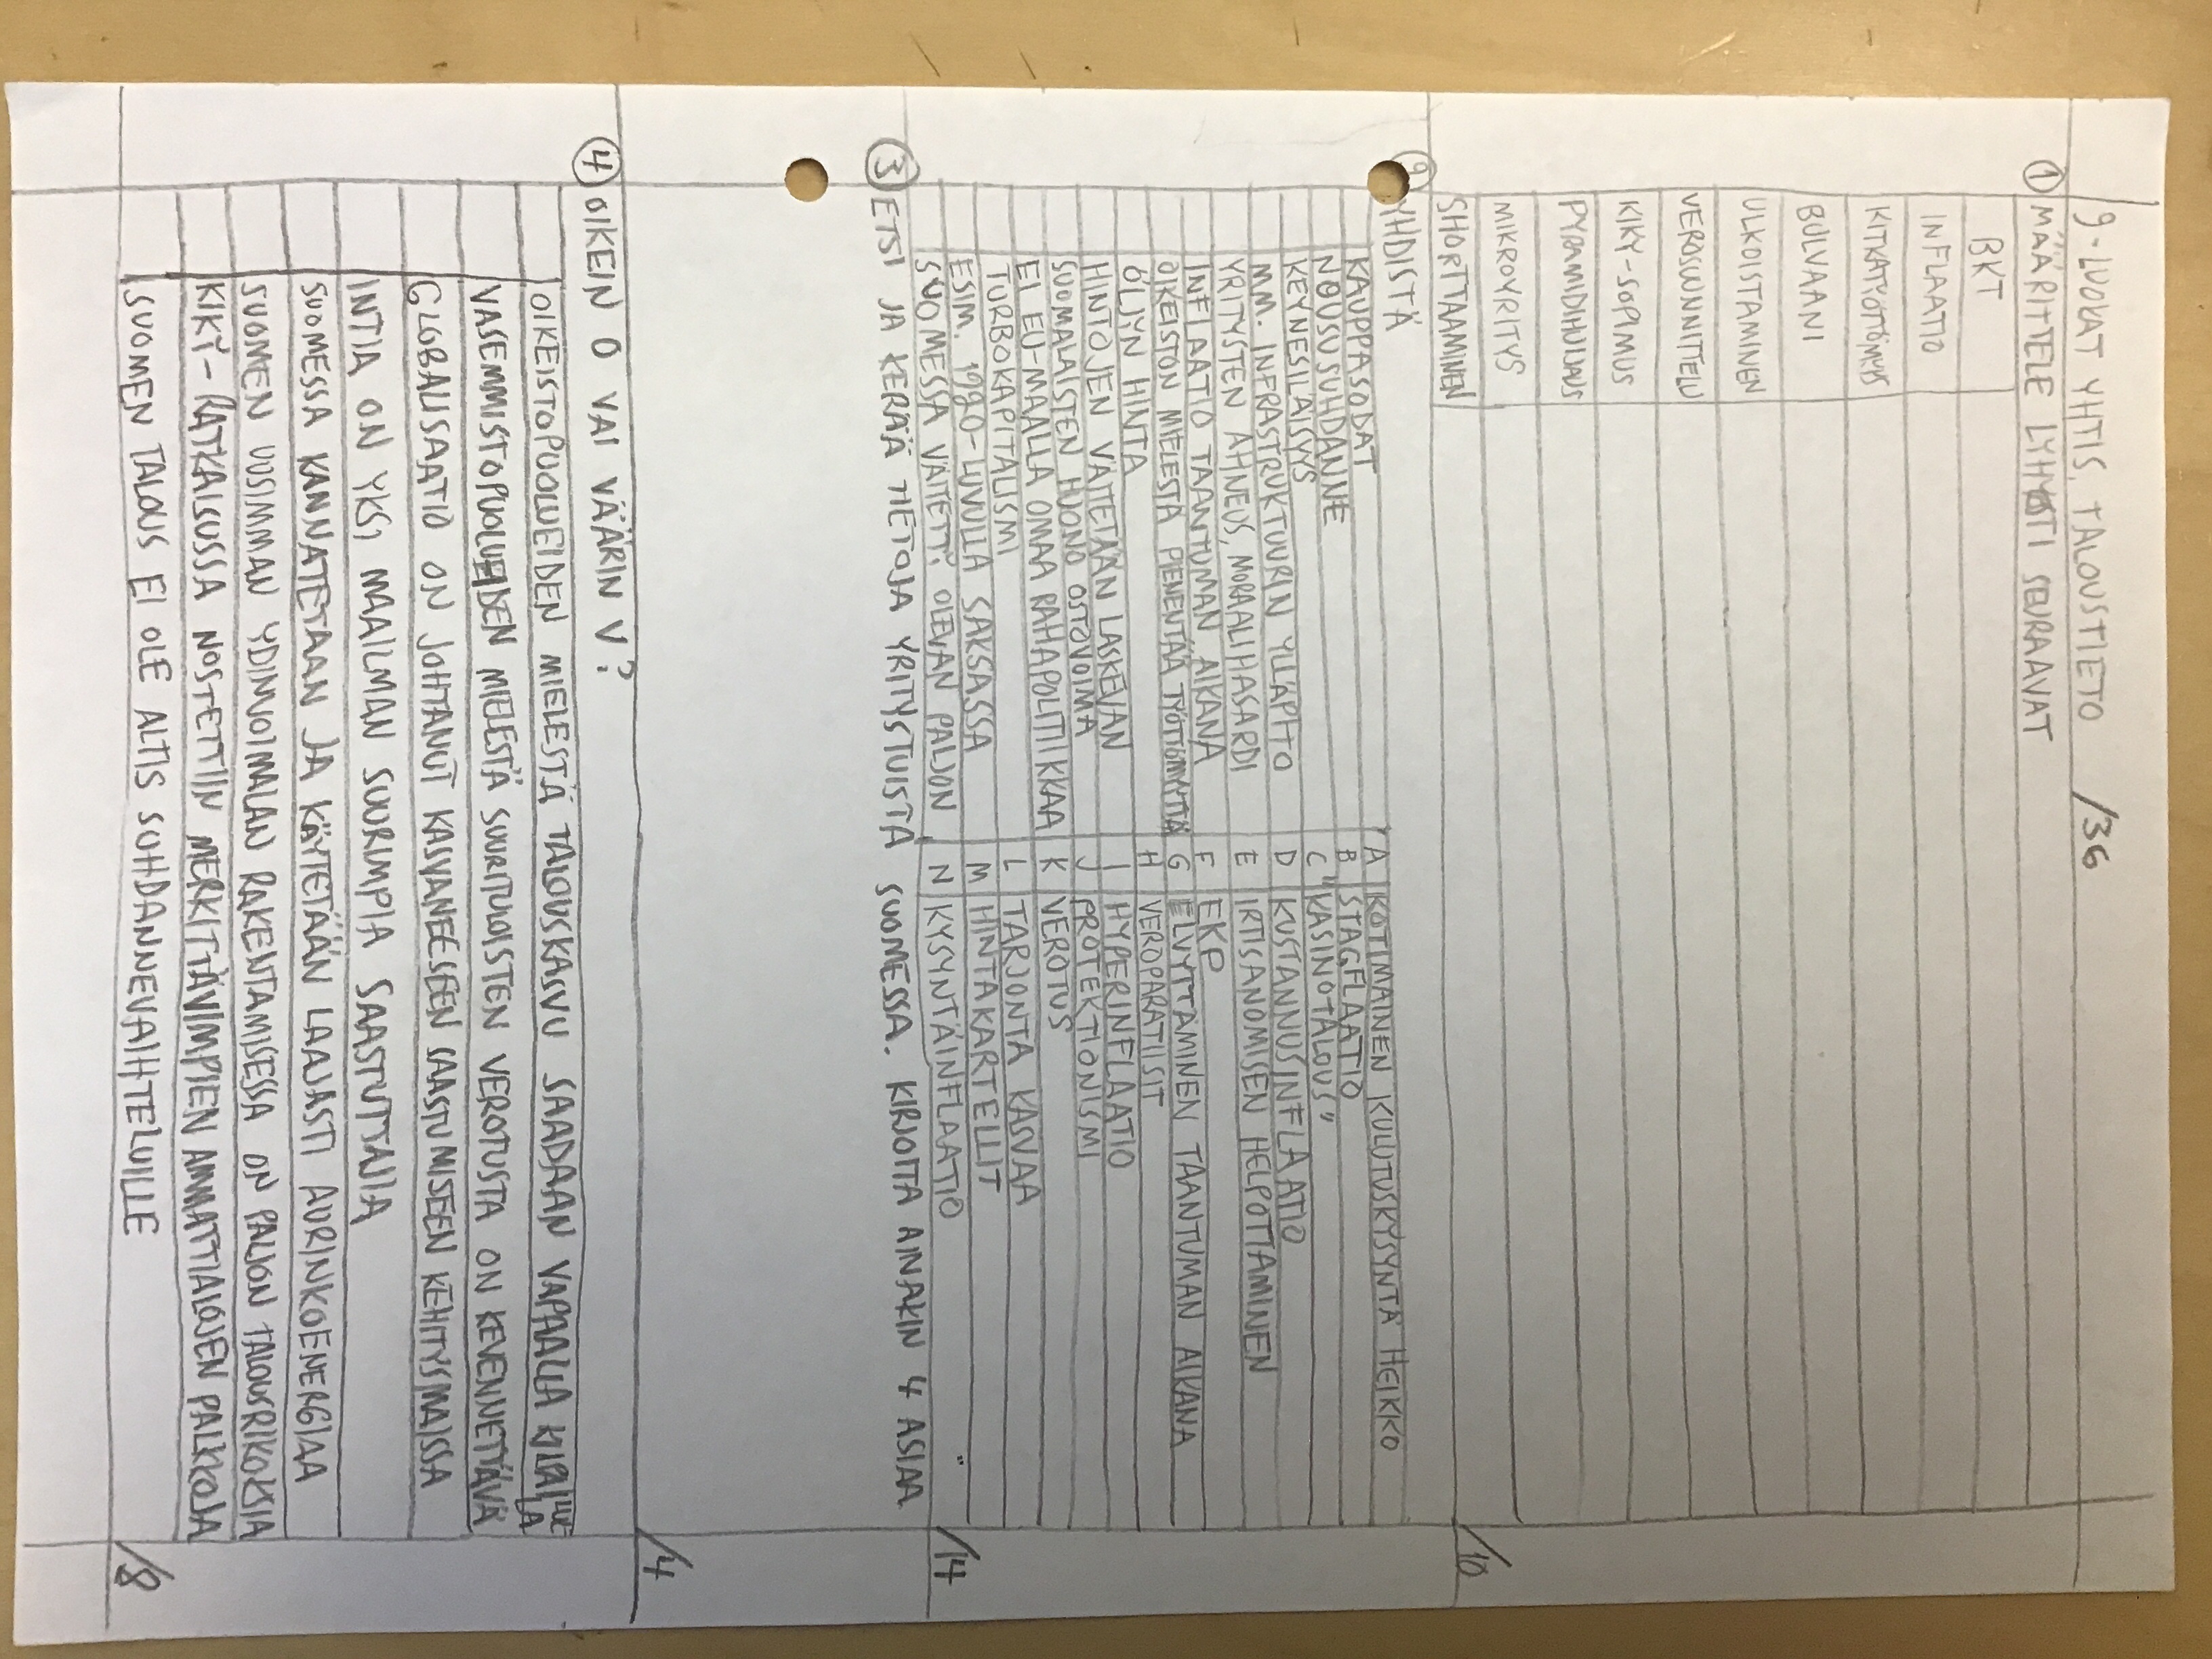 9-LUOKAT YHTIS. TALOUSTIETO /36
① MÄÄRITTELE LYHYESTI SEURAAVAT
BKT
INFLAATIO
KITKATYÖTTÖMYYS
BULVAANI
ULKOISTAMINEN
VEROSUUNNITTELU
KIKY-SOPIMUS
PYRAMIDIHUIJAUS
MIKROYRITYS
SHORTTAAMINEN
/10
YHDISTÄ
KAUPPASODAT A KOTIMAINEN KULUTUSKYSYNTÄ HEIKKO
NOUSUSUHDANNE B STAGFLAATIO
KEYNESILÄISYYS C "KASINOTALOUS"
MM. INFRASTRUKTUURIN YLLÄPITO D KUSTANNUSINFLAATIO
YRITYSTEN AHNEUS, MORAALIHASARDI E IRTISANOMISEN HELPOTTAMINEN
INFLAATIO TAANTUMAN AIKANA F EKP
OIKEISTON MIELESTÄ PIENENTÄÄ TYÖTTÖMYYTTÄ G ELVYTTÄMINEN TAANTUMAN AIKANA
ÖLJYN HINTA H VEROPARATIISIT
HINTOJEN VÄITETÄÄN LASKEVAN I HYPERINFLAATIO
SUOMALAISTEN HUONO OSTOVOIMA J PROTEKTIONISMI
EI EU-MAALLA OMAA RAHAPOLITIIKKAA K VEROTUS
TURBOKAPITALISMI L TARJONTA KASVAA
ESIM. 1920-LUVULLA SAKSASSA M HINTAKARTELLIT
SUOMESSA VÄITETTY OLEVAN PALJON N KYSYNTÄINFLAATIO
/14
③ ETSI JA KERÄÄ TIETOJA YRITYSTUISTA SUOMESSA. KIRJOITA AINAKIN 4 ASIAA
/4
④ OIKEIN O VAI VÄÄRIN V?
OIKEISTOPUOLUEIDEN MIELESTÄ TALOUSKASVU SAADAAN VAPAALLA KILPAILULLA
VASEMMISTOPUOLUEIDEN MIELESTÄ SUURITULOISTEN VEROTUSTA ON KEVENNETTÄVÄ
GLOBALISAATIO ON JOHTANUT KASVANEESEEN SAASTUMISEEN KEHITYSMAISSA
INTIA ON YKSI MAAILMAN SUURIMPIA SAASTUTTAJIA
SUOMESSA KANNATETAAN JA KÄYTETÄÄN LAAJASTI AURINKOENERGIAA
SUOMEN UUSIMMAN YDINVOIMALAN RAKENTAMISESSA ON PALJON TALOUSRIKOKSIA
KIKY-RATKAISUSSA NOSTETTIIN MERKITTÄVIMPIEN AMMATTIALOJEN PALKKOJA
SUOMEN TALOUS EI OLE ALTIS SUHDANNEVAIHTELUILLE
/8